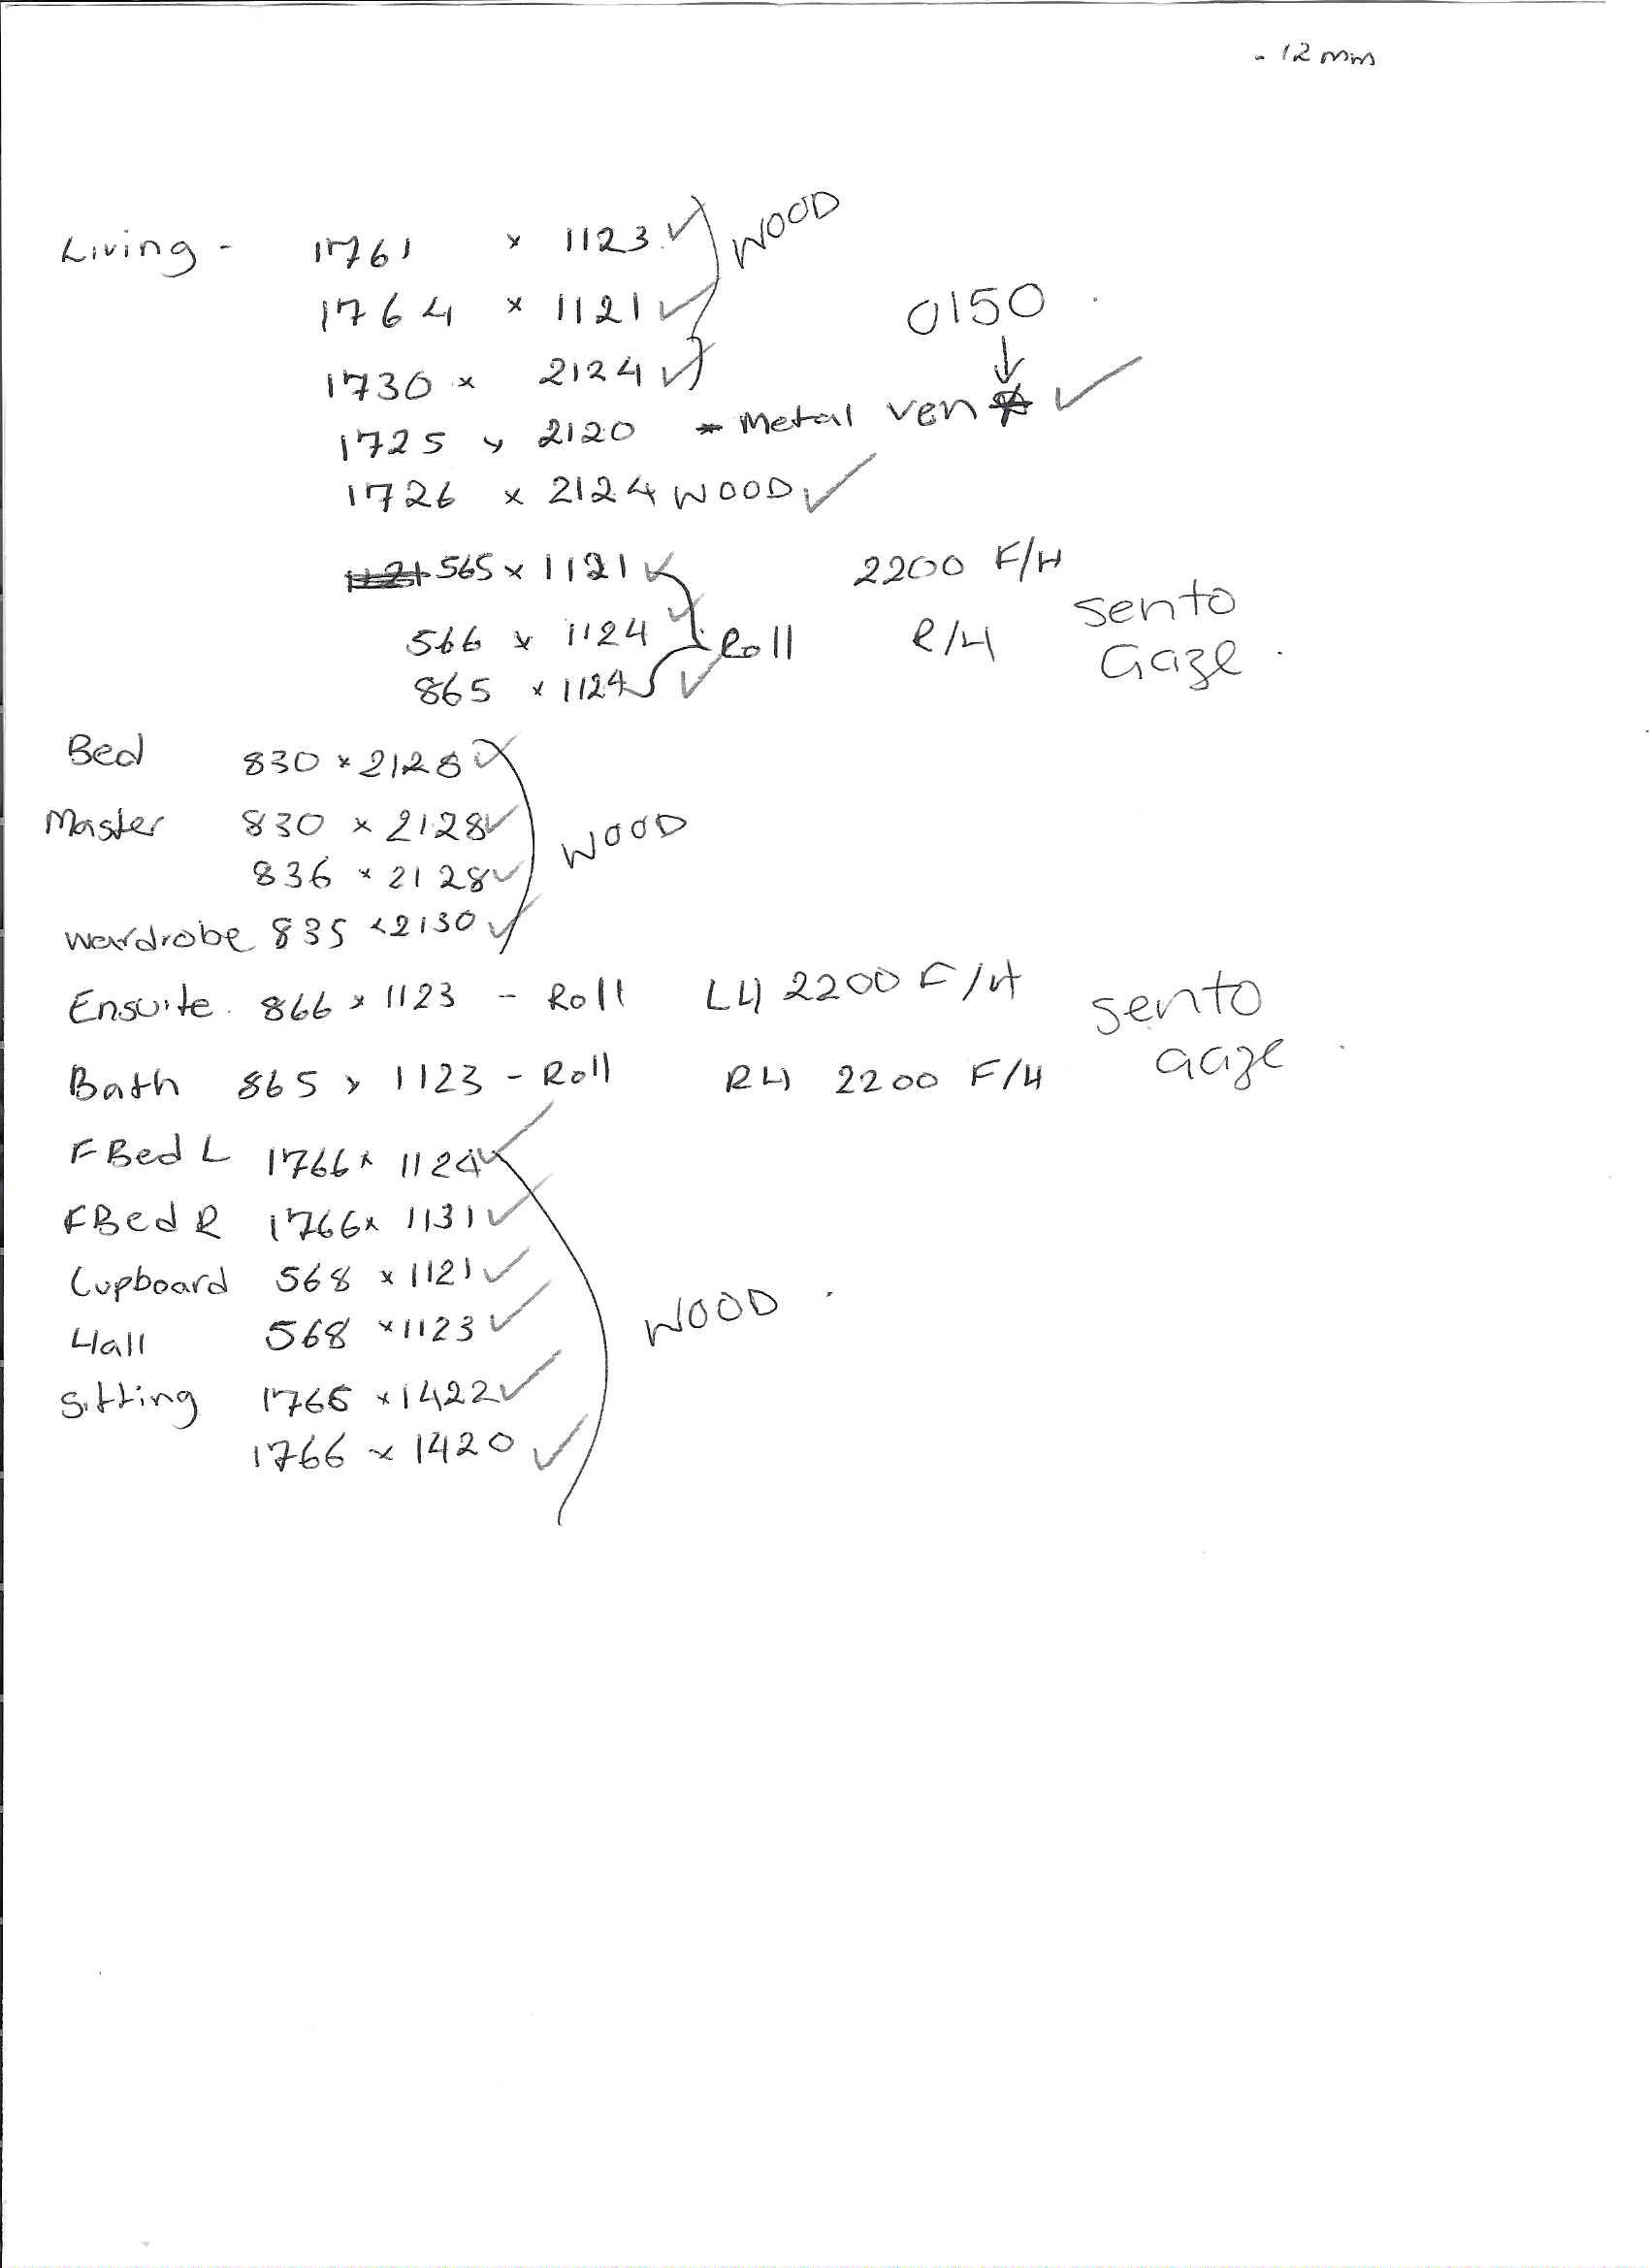 - 12 mm
Living - 1761 x 1123 ✓ WOOD
1764 x 1121 ✓
0150
1730 x 2124 ✓
1725 x 2120 - Metal Ven ✓
1726 x 2124 WOOD ✓
565 x 1121 ✓ 2200 F/H
566 x 1124 ✓ Roll R/H Sento
865 x 1124 ✓ Gaze
Bed 830 x 2128 ✓
Master 830 x 2128 ✓ WOOD
836 x 2128 ✓
Wardrobe 835 x 2130 ✓
Ensuite. 866 x 1123 - Roll LH 2200 F/H Sento
Bath 865 x 1123 - Roll RH 2200 F/H Gaze
F Bed L 1766 x 1124 ✓
F Bed R 1766 x 1131 ✓
Cupboard 568 x 1121 ✓
Hall 568 x 1123 ✓ WOOD
Sitting 1766 x 1422 ✓
1766 x 1420 ✓